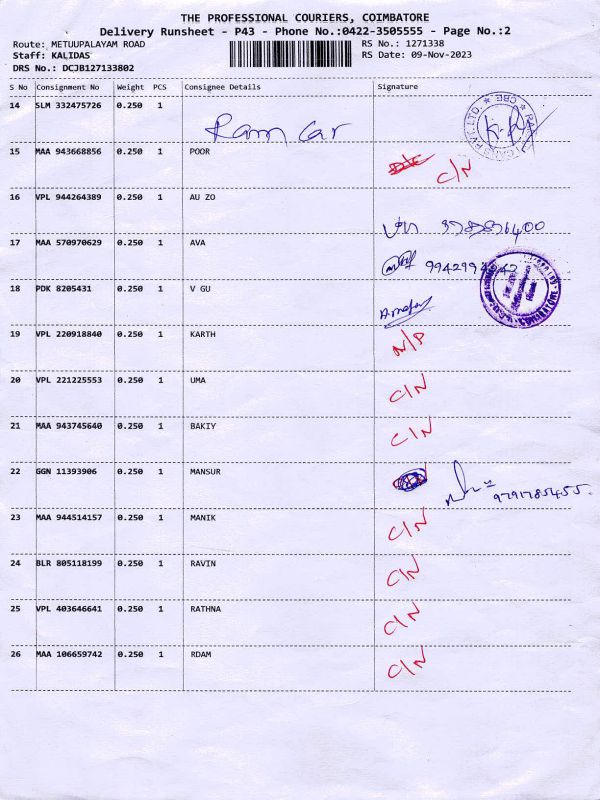 THE PROFESSIONAL COURIERS, COIMBATORE
Delivery Runsheet - P43 - Phone No.:0422-3505555 - Page No.:2
Route: METUUPALAYAM ROAD RS No.: 1271338
Staff: KALIDAS RS Date: 09-Nov-2023
DRS No.: DCJB127133802
S No Consignment No Weight PCS Consignee Details Signature
14 SLM 332475726 0.250 1
Ram Car
15 MAA 943668856 0.250 1 POOR
C/N
16 VPL 944264389 0.250 1 AU ZO
17 MAA 570970629 0.250 1 AVA
18 PDK 8205431 0.250 1 V GU
COIMBATORE
19 VPL 220918840 0.250 1 KARTH
N/P
20 VPL 221225553 0.250 1 UMA
C/N
21 MAA 943745640 0.250 1 BAKIY
C/N
22 GGN 11393906 0.250 1 MANSUR
9791785455.
23 MAA 944514157 0.250 1 MANIK
C/N
24 BLR 805118199 0.250 1 RAVIN
C/N
25 VPL 403646641 0.250 1 RATHNA
C/N
26 MAA 106659742 0.250 1 RDAM
C/N